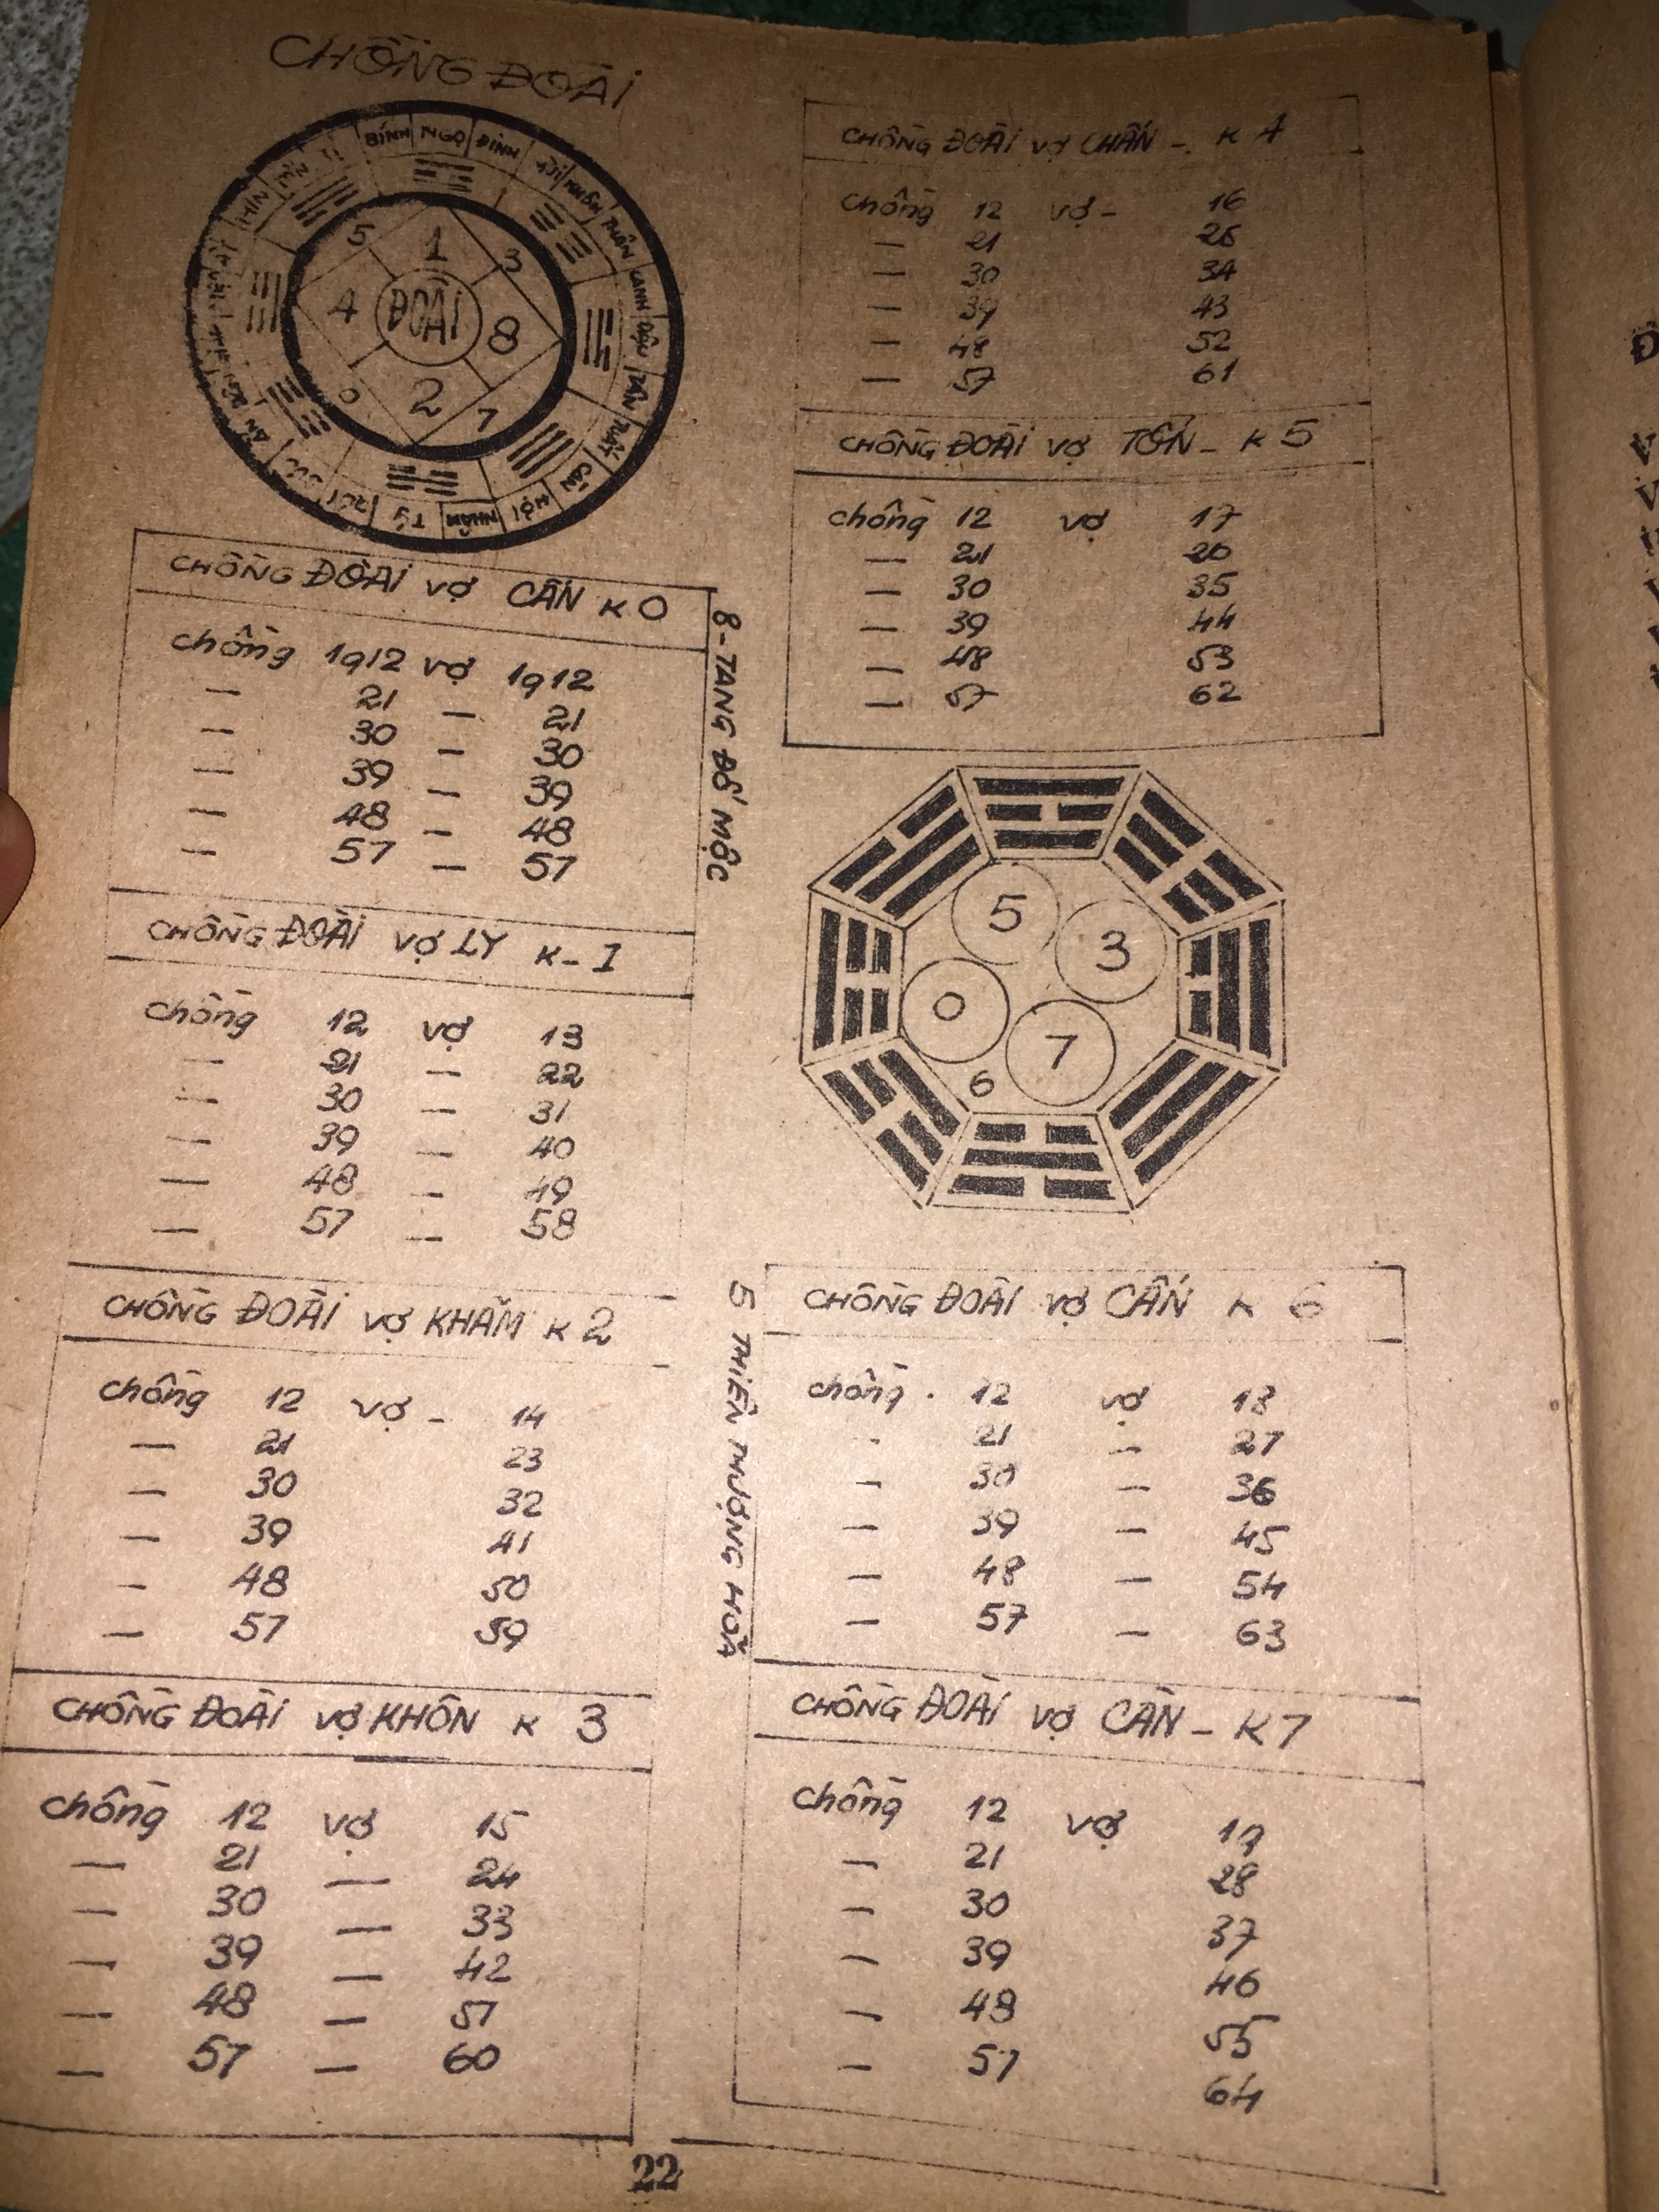 CHỒNG ĐOÀI
BÍNH NGỌ ĐINH
THÌN
ĐOÀI
5 1 3
4 8
0 2 7
TUẤT
HỢI
NHÂM
TÝ
CHỒNG ĐOÀI VỢ CẤN K 0
chồng 1912 vợ 1912
— 21 — 21
— 30 — 30
— 39 — 39
— 48 — 48
— 57 — 57
8-TANG ĐỐ MỘC
CHỒNG ĐOÀI VỢ LY K-1
chồng 12 vợ 13
— 21 — 22
— 30 — 31
— 39 — 40
— 48 — 49
— 57 — 58
CHỒNG ĐOÀI VỢ KHẢM K 2
chồng 12 vợ - 14
— 21 23
— 30 32
— 39 41
— 48 50
— 57 59
CHỒNG ĐOÀI VỢ KHÔN K 3
chồng 12 vợ 15
— 21 — 24
— 30 — 33
— 39 — 42
— 48 — 51
— 57 — 60
CHỒNG ĐOÀI VỢ CHẤN -. K 4
chồng 12 vợ - 16
— 21 25
— 30 34
— 39 43
— 48 52
— 57 61
CHỒNG ĐOÀI VỢ TỐN - K 5
chồng 12 vợ 17
— 21 26
— 30 35
— 39 44
— 48 53
— 57 62
5
3
0
7
6
5 THIÊN THƯỢNG HOẢ
CHỒNG ĐOÀI VỢ CẤN K 6
chồng . 12 vợ 18
- 21 — 27
— 30 — 36
— 39 — 45
— 48 — 54
— 57 — 63
CHỒNG ĐOÀI VỢ CÀN - K 7
chồng 12 vợ 19
— 21 28
— 30 37
— 39 46
— 48 55
— 57 64
22